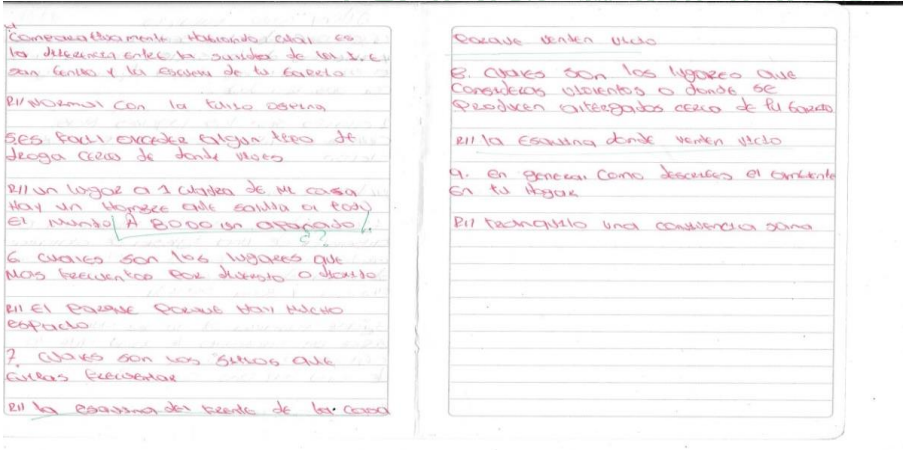 Comparativamente Hablando cual es
la diferencia entre la de la I.E
san benito y la escuela de tu barrio
R// Normal con la
5 Es facil encontrar algun tipo de
droga cerca de donde vives
R// un lugar a 1 cuadra de mi casa
Hay un Hombre que a todo
El mundo A 8000 un
¿?
6 cuales son los lugares que
mas frecuentas por diversto o
R// El Parque Porque Hay Mucho
espacio
7 cuales son los sitios que
evitas frecuentar
R// la esquina del frente de la casa
Porque venden vicio
8. cuales son los lugares que
consideras violentos o donde se
Producen altercados cerca de tu barrio
R// la esquina donde venden vicio
9. en general como describes el ambiente
en tu Hogar
R// tranquilo una convivencia sana